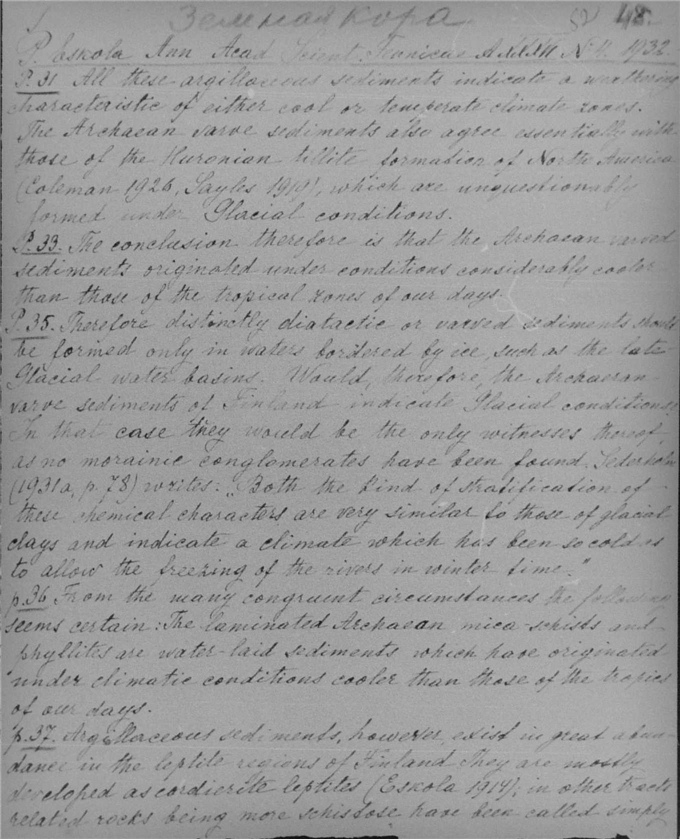 Земная кора. 48.
P. Eskola Ann Acad Scient. Fennicae A XXXVI N 4. 1932.
P. 31 All these argillaceous sediments indicate a weathering
characteristic of either cool or temperate climate zones.
The Archaean varve sediments also agree essentially with
those of the Huronian tillite formation of North America
(Coleman 1926, Sayles 1919), which are unquestionably
formed under Glacial conditions.
P. 33. The conclusion therefore is that the Archaean varved
sediments originated under conditions considerably cooler
than those of the tropical zones of our days.
P. 35. Therefore distinctly diatactic or varved sediments should
be formed only in waters bordered by ice, such as the late-
Glacial water basins. Would, therefore, the Archaeran
varve sediments of Finland indicate Glacial conditions.
In that case they would be the only witnesses thereof,
as no morainic conglomerates have been found. Sederholm
(1931a, p. 78) writes: „Both the kind of stratification of
these chemical characters are very similar to those of glacial
clays and indicate a climate which has been so cold as
to allow the freezing of the rivers in winter time."
p. 36 From the many congruent circumstances the following
seems certain: The laminated Archaean mica-schists and
phyllites are water-laid sediments which have originated
under climatic conditions cooler than those of the tropics
of our days.
p. 37. Argillaceous sediments, however, exist in great abun-
dance in the leptite regions of Finland They are mostly
developed as cordierite leptites (Eskola 1914); in other tracts
related rocks being more schistose have been called simply